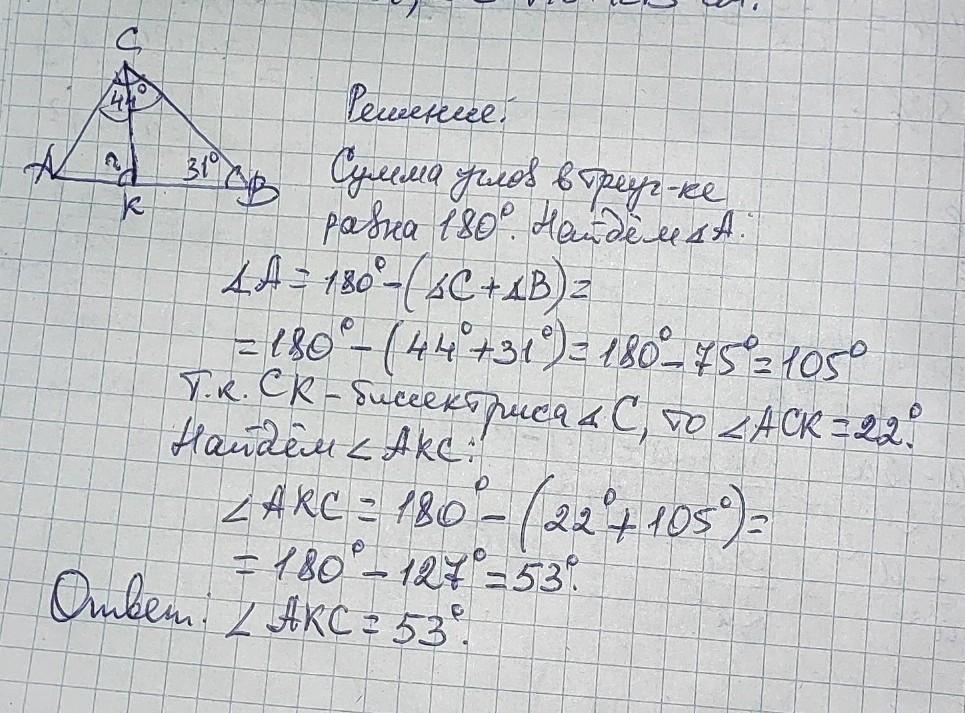 C
44°
A
?
31°
B
K
Решение:
Сумма углов в треуг-ке
равна 180°. Найдём ∠A:
∠A = 180° - (∠C + ∠B) =
= 180° - (44° + 31°) = 180° - 75° = 105°
Т.к. CK - биссектриса ∠C, то ∠ACK = 22°.
Найдём ∠AKC:
∠AKC = 180° - (22° + 105°) =
= 180° - 127° = 53°.
Ответ: ∠AKC = 53°.